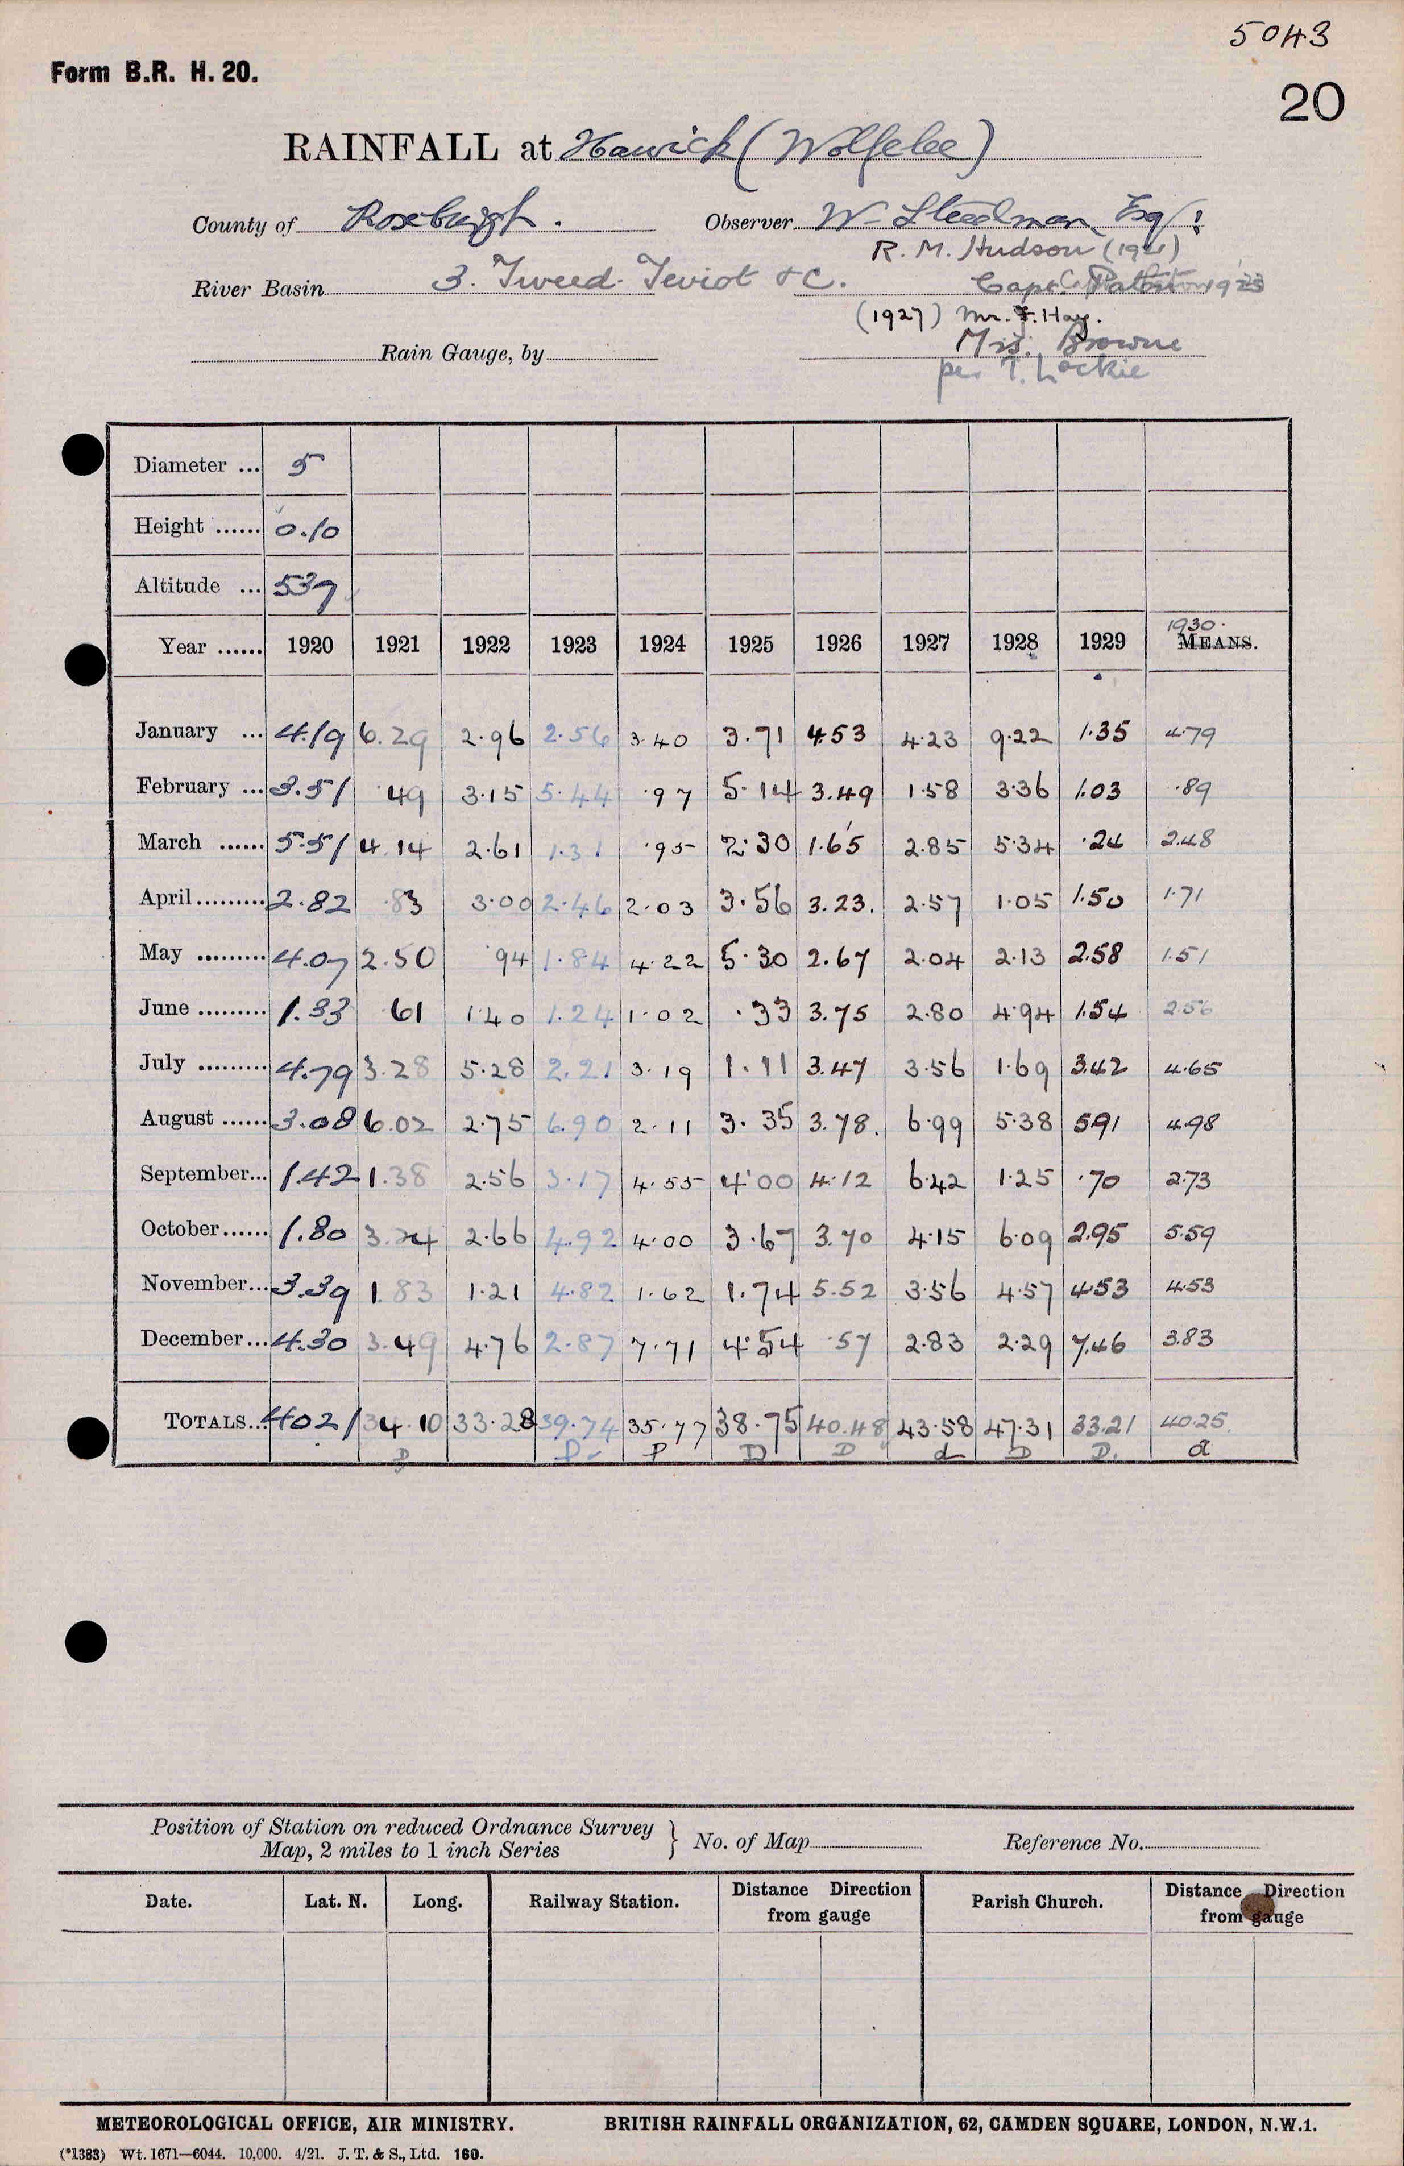 5043
Form B.R. H. 20.
20
RAINFALL at Hawick (Wolfelee)
County of Roxburgh. Observer W. Steedman Esq!
R. M. Hudson (1921)
River Basin 3. Tweed-Teviot &C. Capt. 1923
(1927) Mr. F. Hay.
Rain Gauge, by Mrs. Browne
per T. Lockie
Diameter ... 5
Height ...... 0.10
Altitude ... 537
1930.
Year ...... 1920 1921 1922 1923 1924 1925 1926 1927 1928 1929 MEANS.
January ... 4.19 6.29 2.96 2.56 3.40 3.71 4.53 4.23 9.22 1.35 4.79
February ... 3.51 .49 3.15 5.44 .97 5.14 3.49 1.58 3.36 1.03 .89
March ...... 5.51 4.14 2.61 1.31 .95 2.30 1.65 2.85 5.34 .24 2.48
April ......... 2.82 .83 3.00 2.46 2.03 3.56 3.23. 2.57 1.05 1.50 1.71
May ......... 4.07 2.50 .94 1.84 4.22 5.30 2.67 2.04 2.13 2.58 1.51
June ......... 1.33 61 1.40 1.24 1.02 .33 3.75 2.80 4.94 1.54 2.56
July ......... 4.79 3.28 5.28 2.21 3.19 1.11 3.47 3.56 1.69 3.42 4.65
August ...... 3.08 6.02 2.75 6.90 2.11 3.35 3.78. 6.99 5.38 5.91 4.98
September... 1.42 1.38 2.56 3.17 4.55 4.00 4.12 6.42 1.25 .70 2.73
October...... 1.80 3.24 2.66 4.92 4.00 3.67 3.70 4.15 6.09 2.95 5.59
November... 3.39 1.83 1.21 4.82 1.62 1.74 5.52 3.56 4.57 4.53 4.53
December... 4.30 3.49 4.76 2.87 7.71 4.54 .57 2.83 2.29 7.46 3.83
TOTALS... 40.21 34.10 33.28 39.74 35.77 38.75 40.48 43.58 47.31 33.21 40.25
D D P D D d D D. d
Position of Station on reduced Ordnance Survey Map, 2 miles to 1 inch Series } No. of Map Reference No.
Date. Lat. N. Long. Railway Station. Distance Direction from gauge Parish Church. Distance Direction from gauge
METEOROLOGICAL OFFICE, AIR MINISTRY. BRITISH RAINFALL ORGANIZATION, 62, CAMDEN SQUARE, LONDON, N.W.1.
(*1383) Wt. 1671—6044. 10,000. 4/21. J. T. & S., Ltd. 160.